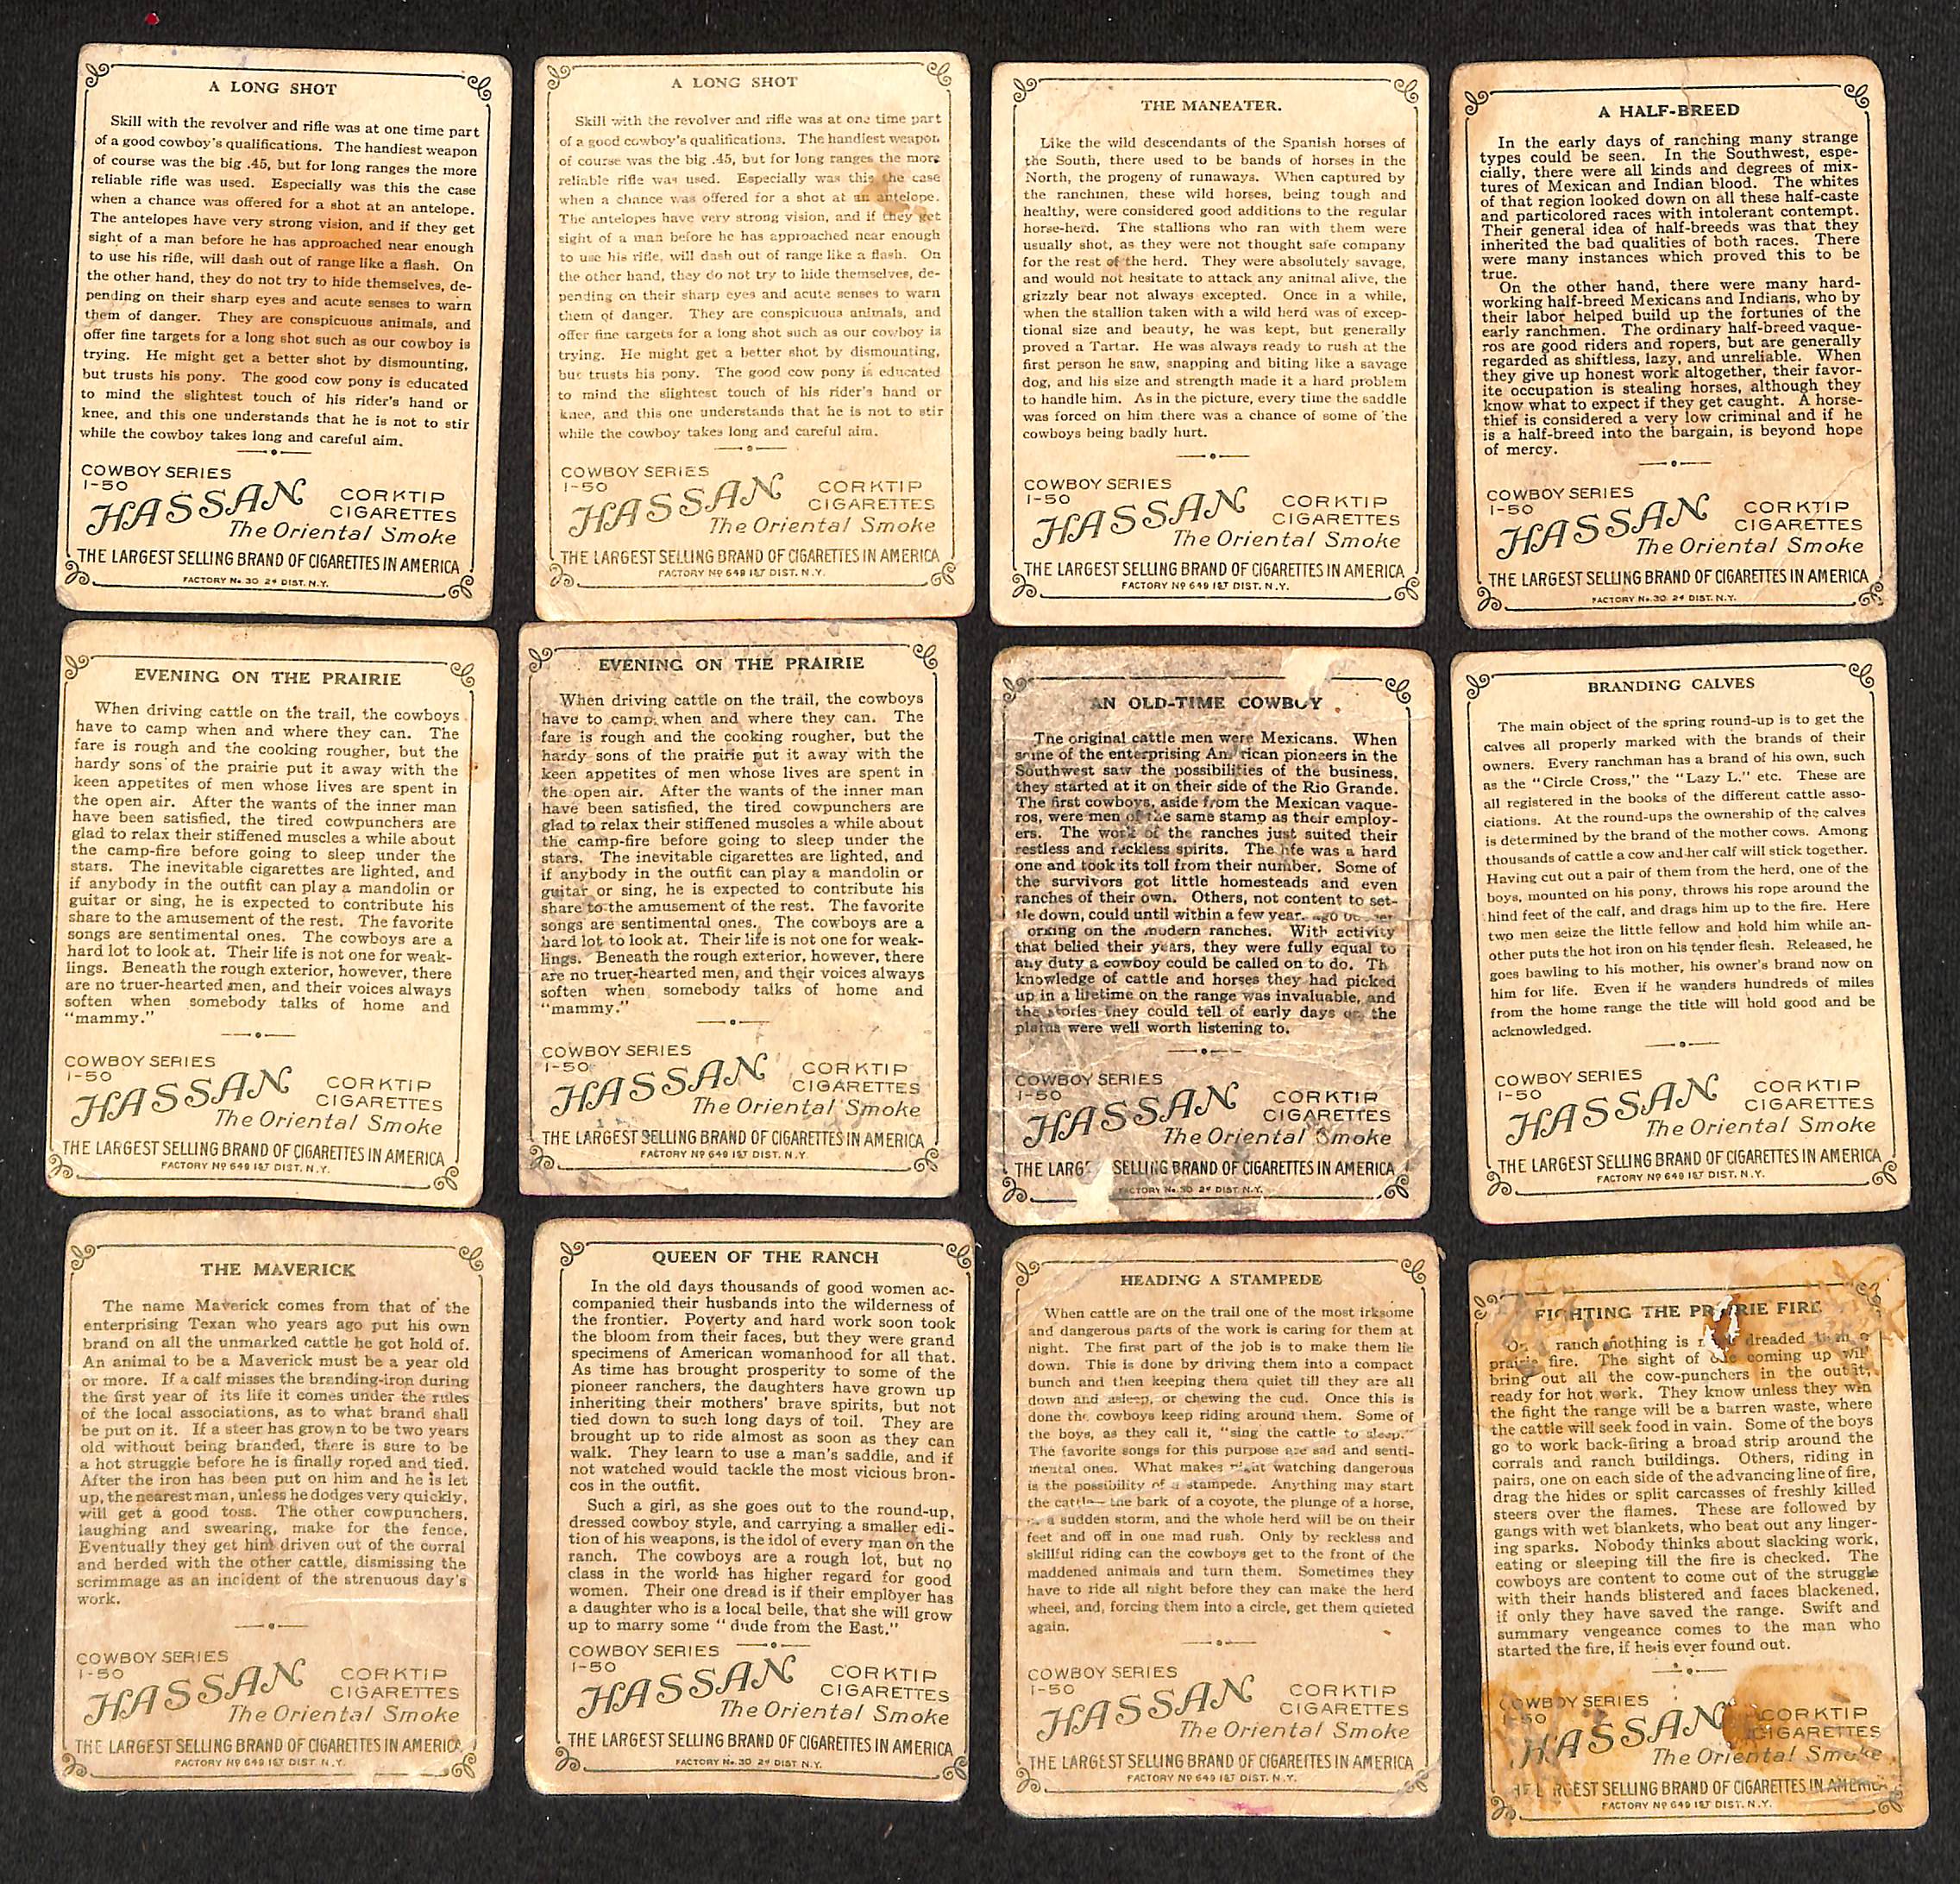 A LONG SHOT
Skill with the revolver and rifle was at one time part
of a good cowboy's qualifications. The handiest weapon
of course was the big .45, but for long ranges the more
reliable rifle was used. Especially was this the case
when a chance was offered for a shot at an antelope.
The antelopes have very strong vision, and if they get
sight of a man before he has approached near enough
to use his rifle, will dash out of range like a flash. On
the other hand, they do not try to hide themselves, de-
pending on their sharp eyes and acute senses to warn
them of danger. They are conspicuous animals, and
offer fine targets for a long shot such as our cowboy is
trying. He might get a better shot by dismounting,
but trusts his pony. The good cow pony is educated
to mind the slightest touch of his rider's hand or
knee, and this one understands that he is not to stir
while the cowboy takes long and careful aim.
COWBOY SERIES
1-50
HASSAN
CORKTIP
CIGARETTES
The Oriental Smoke
THE LARGEST SELLING BRAND OF CIGARETTES IN AMERICA
FACTORY No. 30 2d DIST. N.Y.
A LONG SHOT
Skill with the revolver and rifle was at one time part
of a good cowboy's qualifications. The handiest weapon
of course was the big .45, but for long ranges the more
reliable rifle was used. Especially was this the case
when a chance was offered for a shot at an antelope.
The antelopes have very strong vision, and if they get
sight of a man before he has approached near enough
to use his rifle, will dash out of range like a flash. On
the other hand, they do not try to hide themselves, de-
pending on their sharp eyes and acute senses to warn
them of danger. They are conspicuous animals, and
offer fine targets for a long shot such as our cowboy is
trying. He might get a better shot by dismounting,
but trusts his pony. The good cow pony is educated
to mind the slightest touch of his rider's hand or
knee, and this one understands that he is not to stir
while the cowboy takes long and careful aim.
COWBOY SERIES
1-50
HASSAN
CORKTIP
CIGARETTES
The Oriental Smoke
THE LARGEST SELLING BRAND OF CIGARETTES IN AMERICA
FACTORY No 649 1ST DIST. N.Y.
THE MANEATER.
Like the wild descendants of the Spanish horses of
the South, there used to be bands of horses in the
North, the progeny of runaways. When captured by
the ranchmen, these wild horses, being tough and
healthy, were considered good additions to the regular
horse-herd. The stallions who ran with them were
usually shot, as they were not thought safe company
for the rest of the herd. They were absolutely savage,
and would not hesitate to attack any animal alive, the
grizzly bear not always excepted. Once in a while,
when the stallion taken with a wild herd was of excep-
tional size and beauty, he was kept, but generally
proved a Tartar. He was always ready to rush at the
first person he saw, snapping and biting like a savage
dog, and his size and strength made it a hard problem
to handle him. As in the picture, every time the saddle
was forced on him there was a chance of some of the
cowboys being badly hurt.
COWBOY SERIES
1-50
HASSAN
CORKTIP
CIGARETTES
The Oriental Smoke
THE LARGEST SELLING BRAND OF CIGARETTES IN AMERICA
FACTORY No 649 1ST DIST. N.Y.
A HALF-BREED
In the early days of ranching many strange
types could be seen. In the Southwest, espe-
cially, there were all kinds and degrees of mix-
tures of Mexican and Indian blood. The whites
of that region looked down on all these half-caste
and particolored races with intolerant contempt.
Their general idea of half-breeds was that they
inherited the bad qualities of both races. There
were many instances which proved this to be
true.
On the other hand, there were many hard-
working half-breed Mexicans and Indians, who by
their labor helped build up the fortunes of the
early ranchmen. The ordinary half-breed vaque-
ros are good riders and ropers, but are generally
regarded as shiftless, lazy, and unreliable. When
they give up honest work altogether, their favor-
ite occupation is stealing horses, although they
know what to expect if they get caught. A horse-
thief is considered a very low criminal and if he
is a half-breed into the bargain, is beyond hope
of mercy.
COWBOY SERIES
1-50
HASSAN
CORKTIP
CIGARETTES
The Oriental Smoke
THE LARGEST SELLING BRAND OF CIGARETTES IN AMERICA
FACTORY No. 30 2d DIST. N.Y.
EVENING ON THE PRAIRIE
When driving cattle on the trail, the cowboys
have to camp when and where they can. The
fare is rough and the cooking rougher, but the
hardy sons of the prairie put it away with the
keen appetites of men whose lives are spent in
the open air. After the wants of the inner man
have been satisfied, the tired cowpunchers are
glad to relax their stiffened muscles a while about
the camp-fire before going to sleep under the
stars. The inevitable cigarettes are lighted, and
if anybody in the outfit can play a mandolin or
guitar or sing, he is expected to contribute his
share to the amusement of the rest. The favorite
songs are sentimental ones. The cowboys are a
hard lot to look at. Their life is not one for weak-
lings. Beneath the rough exterior, however, there
are no truer-hearted men, and their voices always
soften when somebody talks of home and
"mammy."
COWBOY SERIES
1-50
HASSAN
CORKTIP
CIGARETTES
The Oriental Smoke
THE LARGEST SELLING BRAND OF CIGARETTES IN AMERICA
FACTORY No 649 1ST DIST. N.Y.
EVENING ON THE PRAIRIE
When driving cattle on the trail, the cowboys
have to camp when and where they can. The
fare is rough and the cooking rougher, but the
hardy sons of the prairie put it away with the
keen appetites of men whose lives are spent in
the open air. After the wants of the inner man
have been satisfied, the tired cowpunchers are
glad to relax their stiffened muscles a while about
the camp-fire before going to sleep under the
stars. The inevitable cigarettes are lighted, and
if anybody in the outfit can play a mandolin or
guitar or sing, he is expected to contribute his
share to the amusement of the rest. The favorite
songs are sentimental ones. The cowboys are a
hard lot to look at. Their life is not one for weak-
lings. Beneath the rough exterior, however, there
are no truer-hearted men, and their voices always
soften when somebody talks of home and
"mammy."
COWBOY SERIES
1-50
HASSAN
CORKTIP
CIGARETTES
The Oriental Smoke
THE LARGEST SELLING BRAND OF CIGARETTES IN AMERICA
FACTORY No 649 1ST DIST. N.Y.
AN OLD-TIME COWBOY
The original cattle men were Mexicans. When
some of the enterprising American pioneers in the
Southwest saw the possibilities of the business,
they started at it on their side of the Rio Grande.
The first cowboys, aside from the Mexican vaque-
ros, were men of the same stamp as their employ-
ers. The work of the ranches just suited their
restless and reckless spirits. The life was a hard
one and took its toll from their number. Some of
the survivors got little homesteads and even
ranches of their own. Others, not content to set-
tle down, could until within a few year. ago
orking on the modern ranches. With activity
that belied their years, they were fully equal to
any duty a cowboy could be called on to do. Th
knowledge of cattle and horses they had picked
up in a lifetime on the range was invaluable, and
the stories they could tell of early days on the
plains were well worth listening to.
COWBOY SERIES
1-50
HASSAN
CORKTIP
CIGARETTES
The Oriental Smoke
THE LARG SELLING BRAND OF CIGARETTES IN AMERICA
FACTORY No. 30 2d DIST. N.Y.
BRANDING CALVES
The main object of the spring round-up is to get the
calves all properly marked with the brands of their
owners. Every ranchman has a brand of his own, such
as the "Circle Cross," the "Lazy L." etc. These are
all registered in the books of the different cattle asso-
ciations. At the round-ups the ownership of the calves
is determined by the brand of the mother cows. Among
thousands of cattle a cow and her calf will stick together.
Having cut out a pair of them from the herd, one of the
boys, mounted on his pony, throws his rope around the
hind feet of the calf, and drags him up to the fire. Here
two men seize the little fellow and hold him while an-
other puts the hot iron on his tender flesh. Released, he
goes bawling to his mother, his owner's brand now on
him for life. Even if he wanders hundreds of miles
from the home range the title will hold good and be
acknowledged.
COWBOY SERIES
1-50
HASSAN
CORKTIP
CIGARETTES
The Oriental Smoke
THE LARGEST SELLING BRAND OF CIGARETTES IN AMERICA
FACTORY No 649 1ST DIST. N.Y.
THE MAVERICK
The name Maverick comes from that of the
enterprising Texan who years ago put his own
brand on all the unmarked cattle he got hold of.
An animal to be a Maverick must be a year old
or more. If a calf misses the branding-iron during
the first year of its life it comes under the rules
of the local associations, as to what brand shall
be put on it. If a steer has grown to be two years
old without being branded, there is sure to be
a hot struggle before he is finally roped and tied.
After the iron has been put on him and he is let
up, the nearest man, unless he dodges very quickly,
will get a good toss. The other cowpunchers,
laughing and swearing, make for the fence.
Eventually they get him driven out of the corral
and herded with the other cattle, dismissing the
scrimmage as an incident of the strenuous day's
work.
COWBOY SERIES
1-50
HASSAN
CORKTIP
CIGARETTES
The Oriental Smoke
THE LARGEST SELLING BRAND OF CIGARETTES IN AMERICA
FACTORY No 649 1ST DIST. N.Y.
QUEEN OF THE RANCH
In the old days thousands of good women ac-
companied their husbands into the wilderness of
the frontier. Poverty and hard work soon took
the bloom from their faces, but they were grand
specimens of American womanhood for all that.
As time has brought prosperity to some of the
pioneer ranchers, the daughters have grown up
inheriting their mothers' brave spirits, but not
tied down to such long days of toil. They are
brought up to ride almost as soon as they can
walk. They learn to use a man's saddle, and if
not watched would tackle the most vicious bron-
cos in the outfit.
Such a girl, as she goes out to the round-up,
dressed cowboy style, and carrying a smaller edi-
tion of his weapons, is the idol of every man on the
ranch. The cowboys are a rough lot, but no
class in the world has higher regard for good
women. Their one dread is if their employer has
a daughter who is a local belle, that she will grow
up to marry some "dude from the East."
COWBOY SERIES
1-50
HASSAN
CORKTIP
CIGARETTES
The Oriental Smoke
THE LARGEST SELLING BRAND OF CIGARETTES IN AMERICA
FACTORY No. 30 2d DIST. N.Y.
HEADING A STAMPEDE
When cattle are on the trail one of the most irksome
and dangerous parts of the work is caring for them at
night. The first part of the job is to make them lie
down. This is done by driving them into a compact
bunch and then keeping them quiet till they are all
down and asleep, or chewing the cud. Once this is
done the cowboys keep riding around them. Some of
the boys, as they call it, "sing the cattle to sleep."
The favorite songs for this purpose are sad and senti-
mental ones. What makes night watching dangerous
is the possibility of a stampede. Anything may start
the cattle—the bark of a coyote, the plunge of a horse,
a sudden storm, and the whole herd will be on their
feet and off in one mad rush. Only by reckless and
skillful riding can the cowboys get to the front of the
maddened animals and turn them. Sometimes they
have to ride all night before they can make the herd
wheel, and, forcing them into a circle, get them quieted
again.
COWBOY SERIES
1-50
HASSAN
CORKTIP
CIGARETTES
The Oriental Smoke
THE LARGEST SELLING BRAND OF CIGARETTES IN AMERICA
FACTORY No 649 1ST DIST. N.Y.
FIGHTING THE PRAIRIE FIRE
On ranch nothing is dreaded than a
prairie fire. The sight of one coming up will
bring out all the cow-punchers in the outfit,
ready for hot work. They know unless they win
the fight the range will be a barren waste, where
the cattle will seek food in vain. Some of the boys
go to work back-firing a broad strip around the
corrals and ranch buildings. Others, riding in
pairs, one on each side of the advancing line of fire,
drag the hides or split carcasses of freshly killed
steers over the flames. These are followed by
gangs with wet blankets, who beat out any linger-
ing sparks. Nobody thinks about slacking work,
eating or sleeping till the fire is checked. The
cowboys are content to come out of the struggle
with their hands blistered and faces blackened,
if only they have saved the range. Swift and
summary vengeance comes to the man who
started the fire, if he is ever found out.
COWBOY SERIES
50
HASSAN
CORKTIP
CIGARETTES
The Oriental Smoke
SELLING BRAND OF CIGARETTES IN AMERICA
FACTORY No 649 1ST DIST. N.Y.